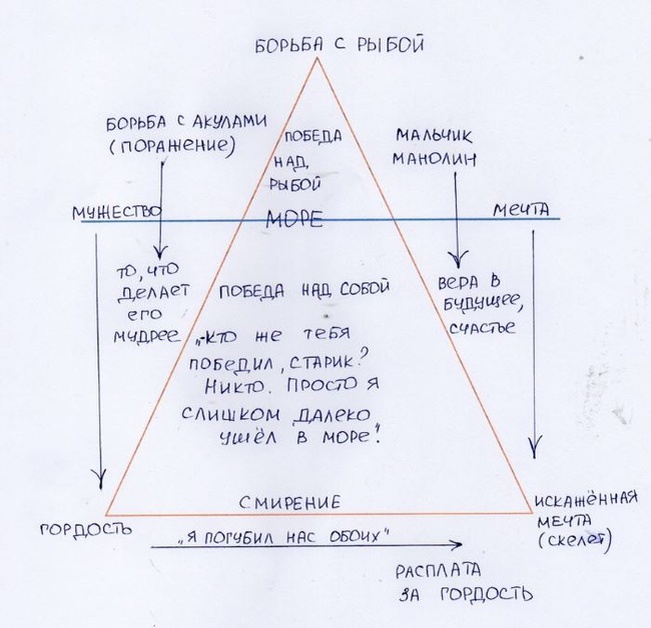 БОРЬБА С РЫБОЙ
БОРЬБА С АКУЛАМИ
(ПОРАЖЕНИЕ)
ПОБЕДА
НАД
РЫБОЙ
МАЛЬЧИК
МАНОЛИН
МУЖЕСТВО
МОРЕ
МЕЧТА
ТО, ЧТО
ДЕЛАЕТ
ЕГО
МУДРЕЕ
ПОБЕДА НАД СОБОЙ
„КТО ЖЕ ТЕБЯ
ПОБЕДИЛ, СТАРИК?
НИКТО. ПРОСТО Я
СЛИШКОМ ДАЛЕКО
УШЁЛ В МОРЕ".
ВЕРА В
БУДУЩЕЕ,
СЧАСТЬЕ
СМИРЕНИЕ
ГОРДОСТЬ
ИСКАЖЁННАЯ
МЕЧТА
(СКЕЛЕТ)
„Я ПОГУБИЛ НАС ОБОИХ"
РАСПЛАТА
ЗА ГОРДОСТЬ